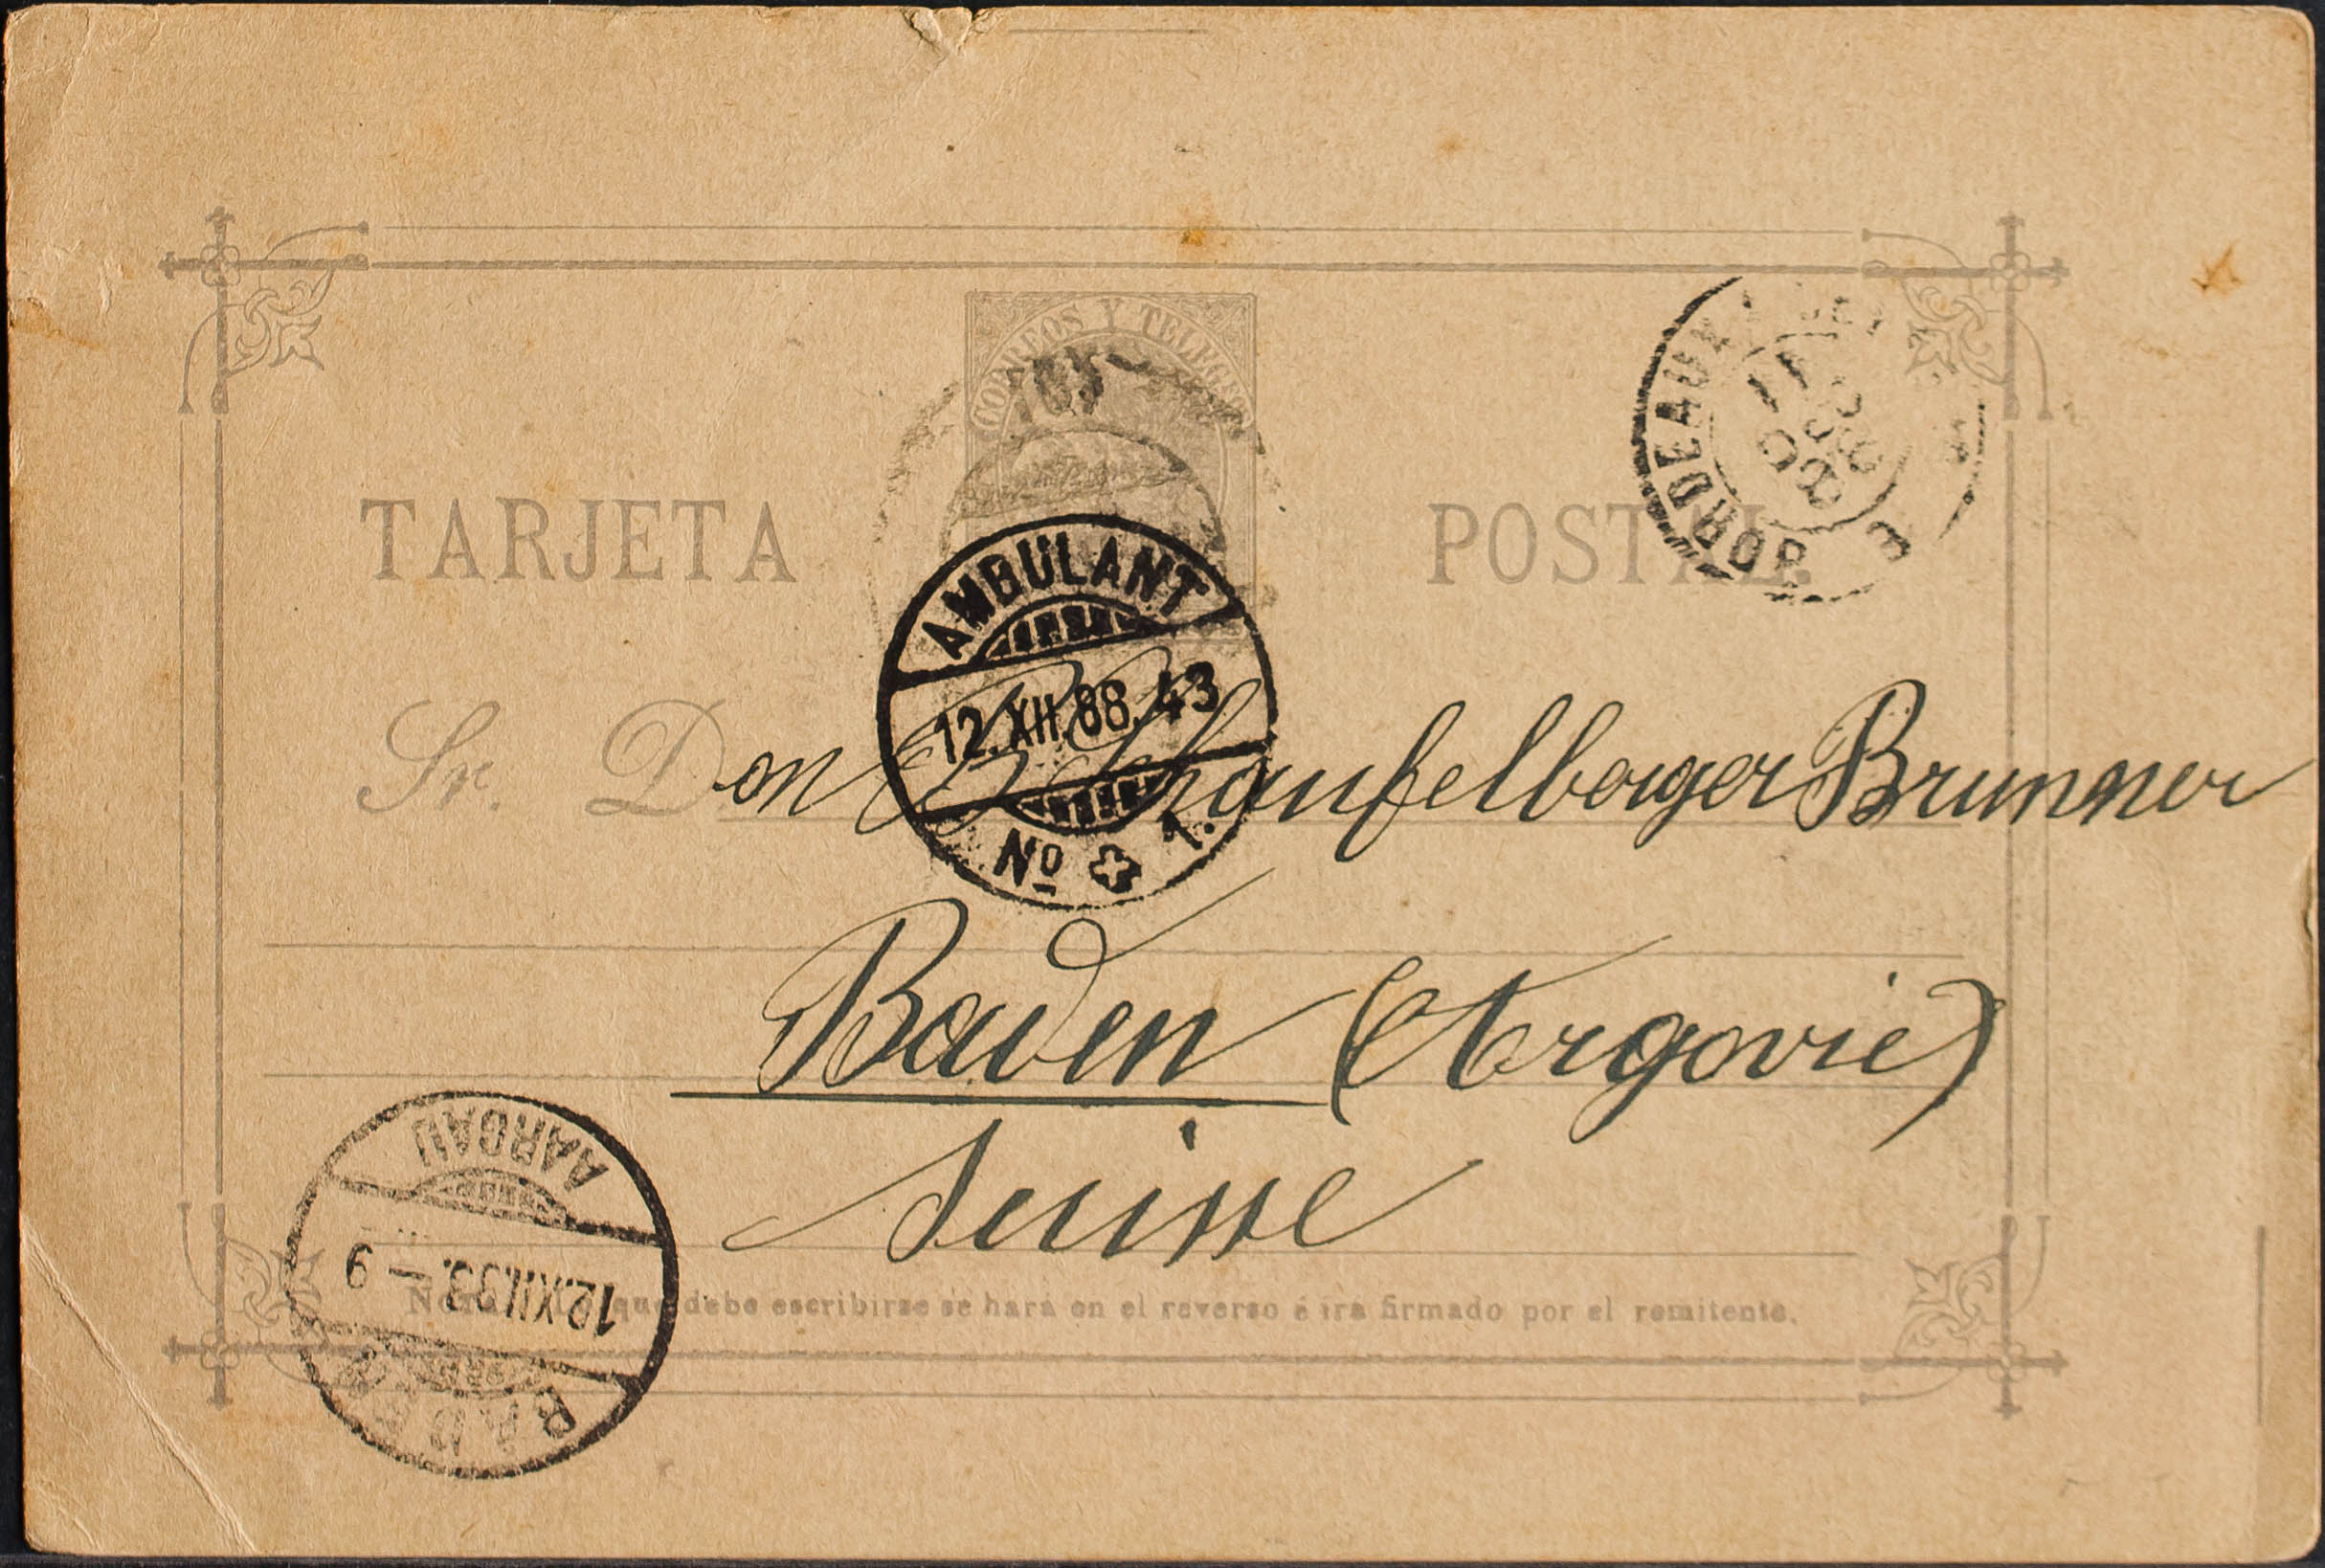 CORREOS Y TELEGFOS
TARJETA POSTAL.
BORDEAUX
AMBULANT
12.XII.88.43
No 1.
Sr. Don Schaufelberger Brunner
Baden (Argovie)
Suisse
AARGAU
12.XII.88.–9
BADEN
Nota. Lo que debe escribirse se hará en el reverso é irá firmado por el remitente.